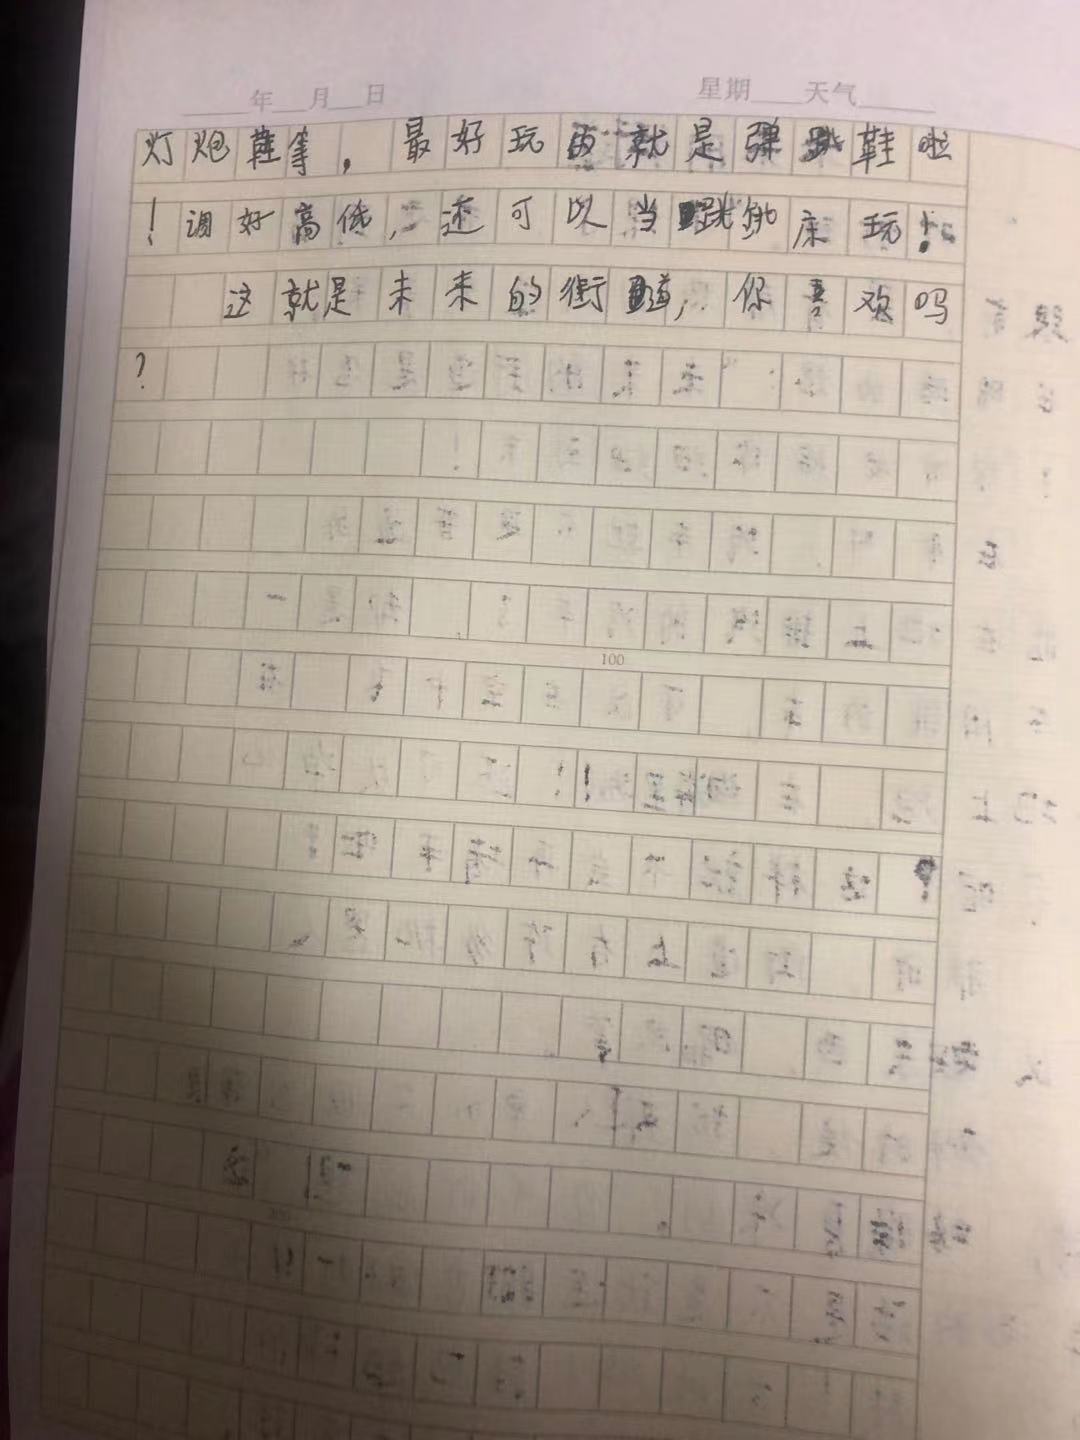 年 月 日 星期 天气
灯炮鞋等,最好玩的就是弹跳鞋啦
!调好高低,还可以当跳床玩!
这就是未来的街道,你喜欢吗
?
100